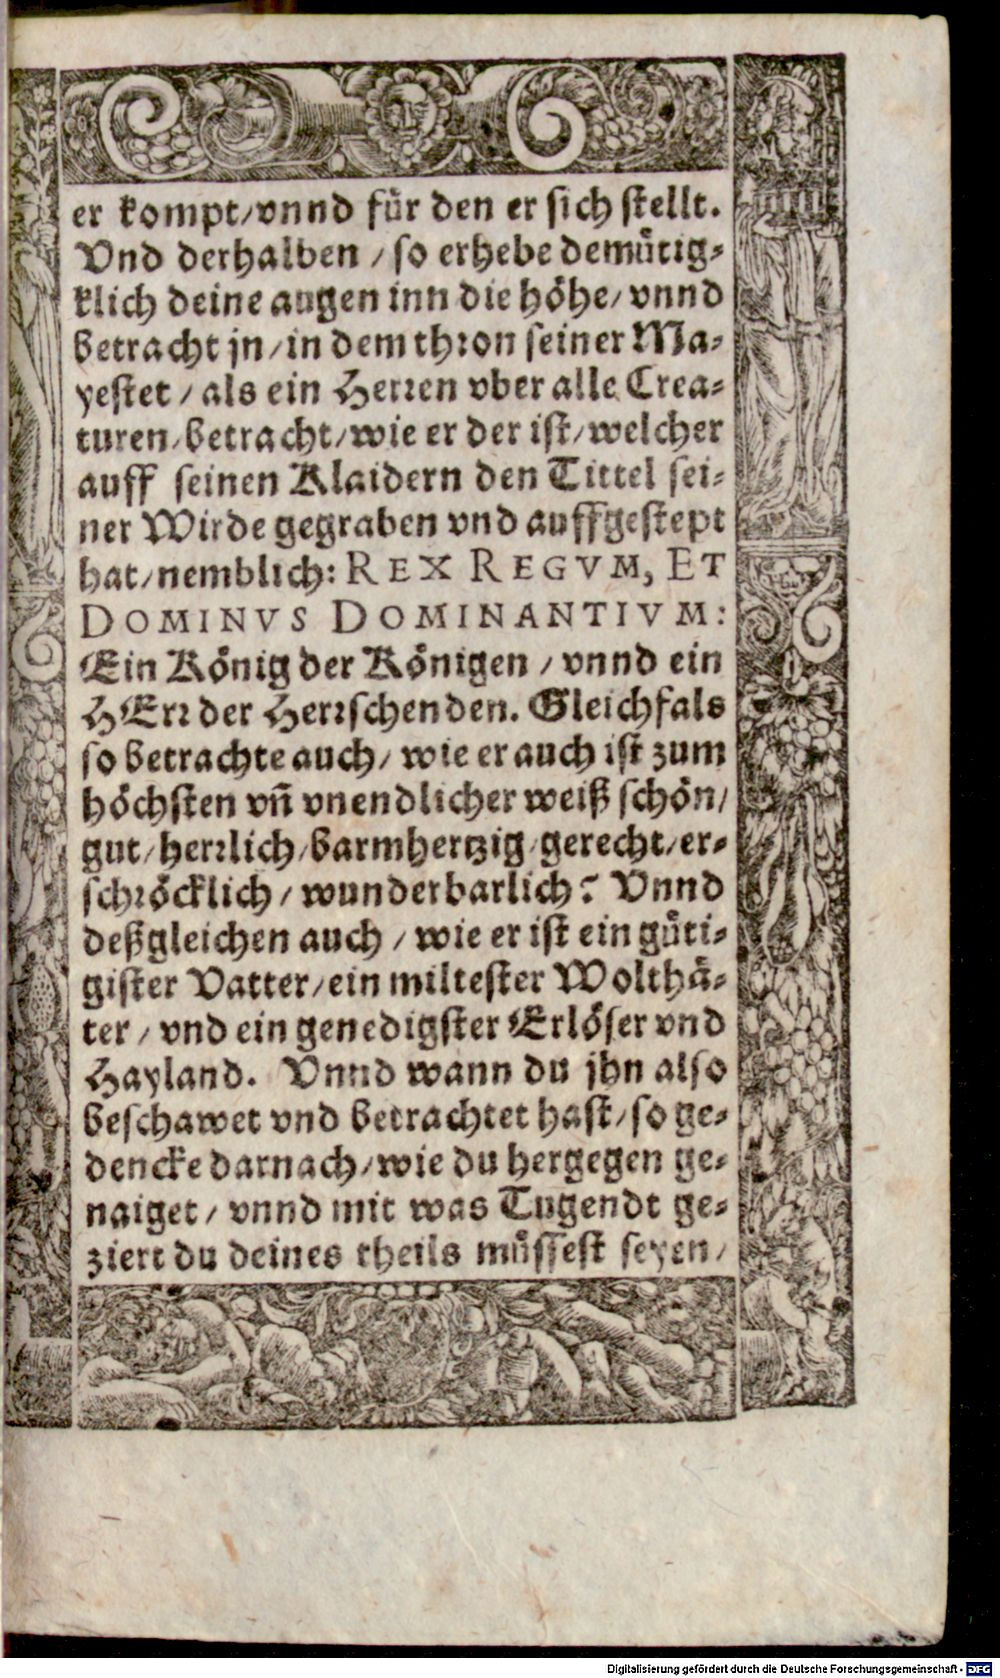 er kompt/vnnd für den er sich stellt.
Vnd derhalben / so erhebe demütig-
klich deine augen inn die höhe/ vnnd
betracht jn/in dem thron seiner Ma-
yestet / als ein Herren vber alle Crea-
turen/betracht/wie er der ist/welcher
auff seinen Klaidern den Tittel sei-
ner Wirde gegraben vnd auffgestept
hat/nemblich: REX REGVM, ET
DOMINVS DOMINANTIVM:
Ein König der Königen / vnnd ein
HErr der Herrschenden. Gleichfals
so betrachte auch/ wie er auch ist zum
höchsten vñ vnendlicher weiß schön/
gut/herrlich/barmhertzig/gerecht/er-
schröcklich/ wunderbarlich? Vnnd
deßgleichen auch / wie er ist ein güti-
gister Vatter/ein miltester Wolthä-
ter / vnd ein genedigster Erlöser vnd
Hayland. Vnnd wann du jhn also
beschawet vnd betrachtet hast/so ge-
dencke darnach/wie du hergegen ge-
naiget/ vnnd mit was Tugendt ge-
ziert du deines theils müssest seyen/
Digitalisierung gefördert durch die Deutsche Forschungsgemeinschaft - DFG